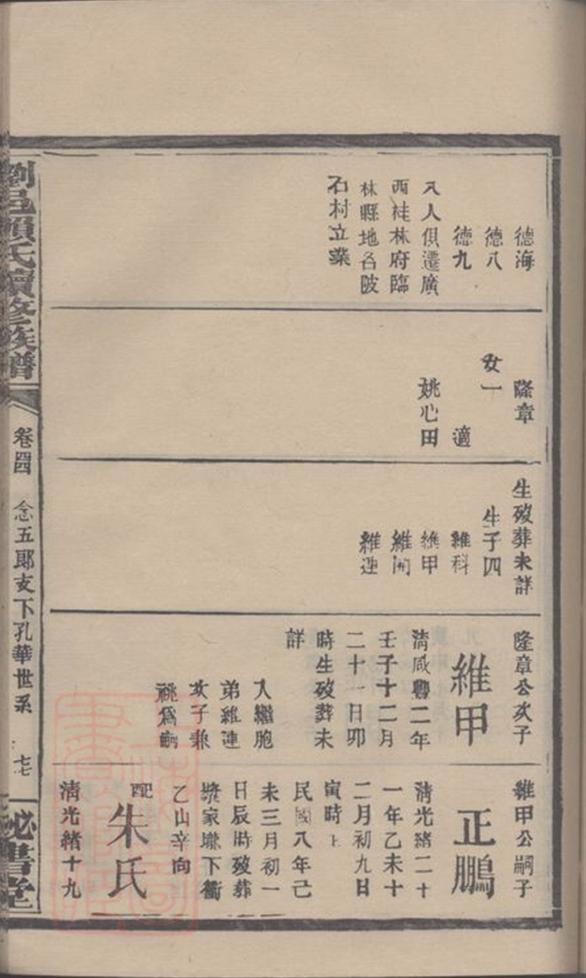 德海
德八
德九
八人俱遷廣
西桂林府臨
林縣地名陂
石村立業
隆章
女一 適
姚心田
生歿葬未詳
生子四
維科
維甲
維開
維連
隆章公次子
維甲
清咸豐二年
壬子十二月
二十一日卯
時生歿葬未
詳
入繼胞
弟維連
次子兼
祧為嗣
維甲公嗣子
正鵬
清光緒二十
一年乙未十
二月初九日
寅時生
民國八年己
未三月初一
日辰時歿葬
家壠下衝
乙山辛向
配
朱氏
清光緒十九
劉邑賴氏續修族譜
卷四 念五郎支下孔華世系 七
秘書堂